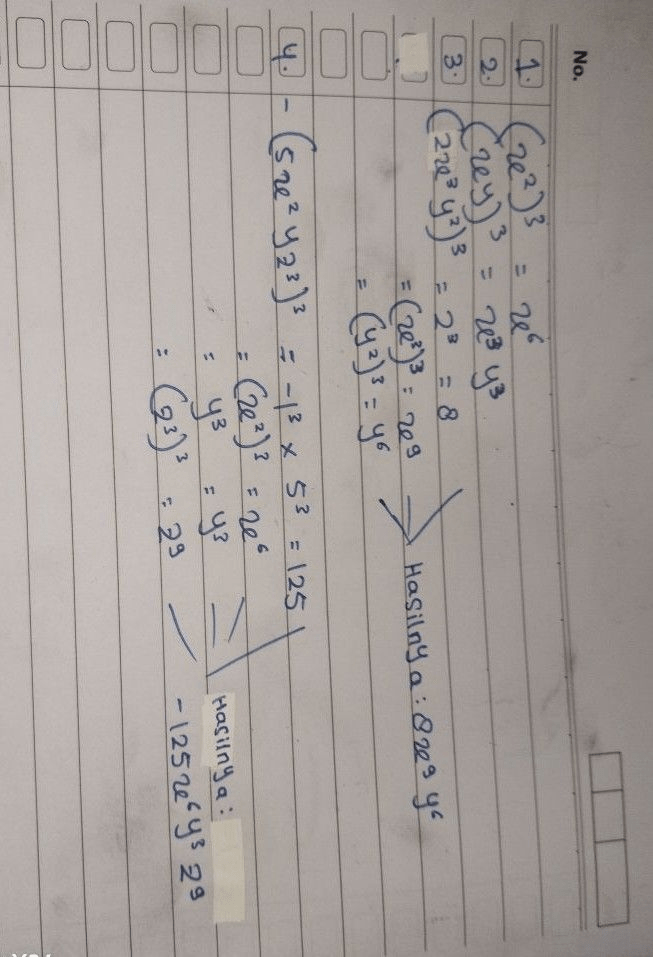 No.
1. (x²)³ = x⁶
2. (xy)³ = x³y³
3. (2x³y²)³ = 2³ = 8
= (x³)³ = x⁹
= (y²)³ = y⁶
Hasilnya: 8x⁹y⁶
4. -(5x²yz³)³ = -1³ × 5³ = 125
= (x²)³ = x⁶
= y³ = y³
= (z³)³ = z⁹
Hasilnya:
-125x⁶y³z⁹